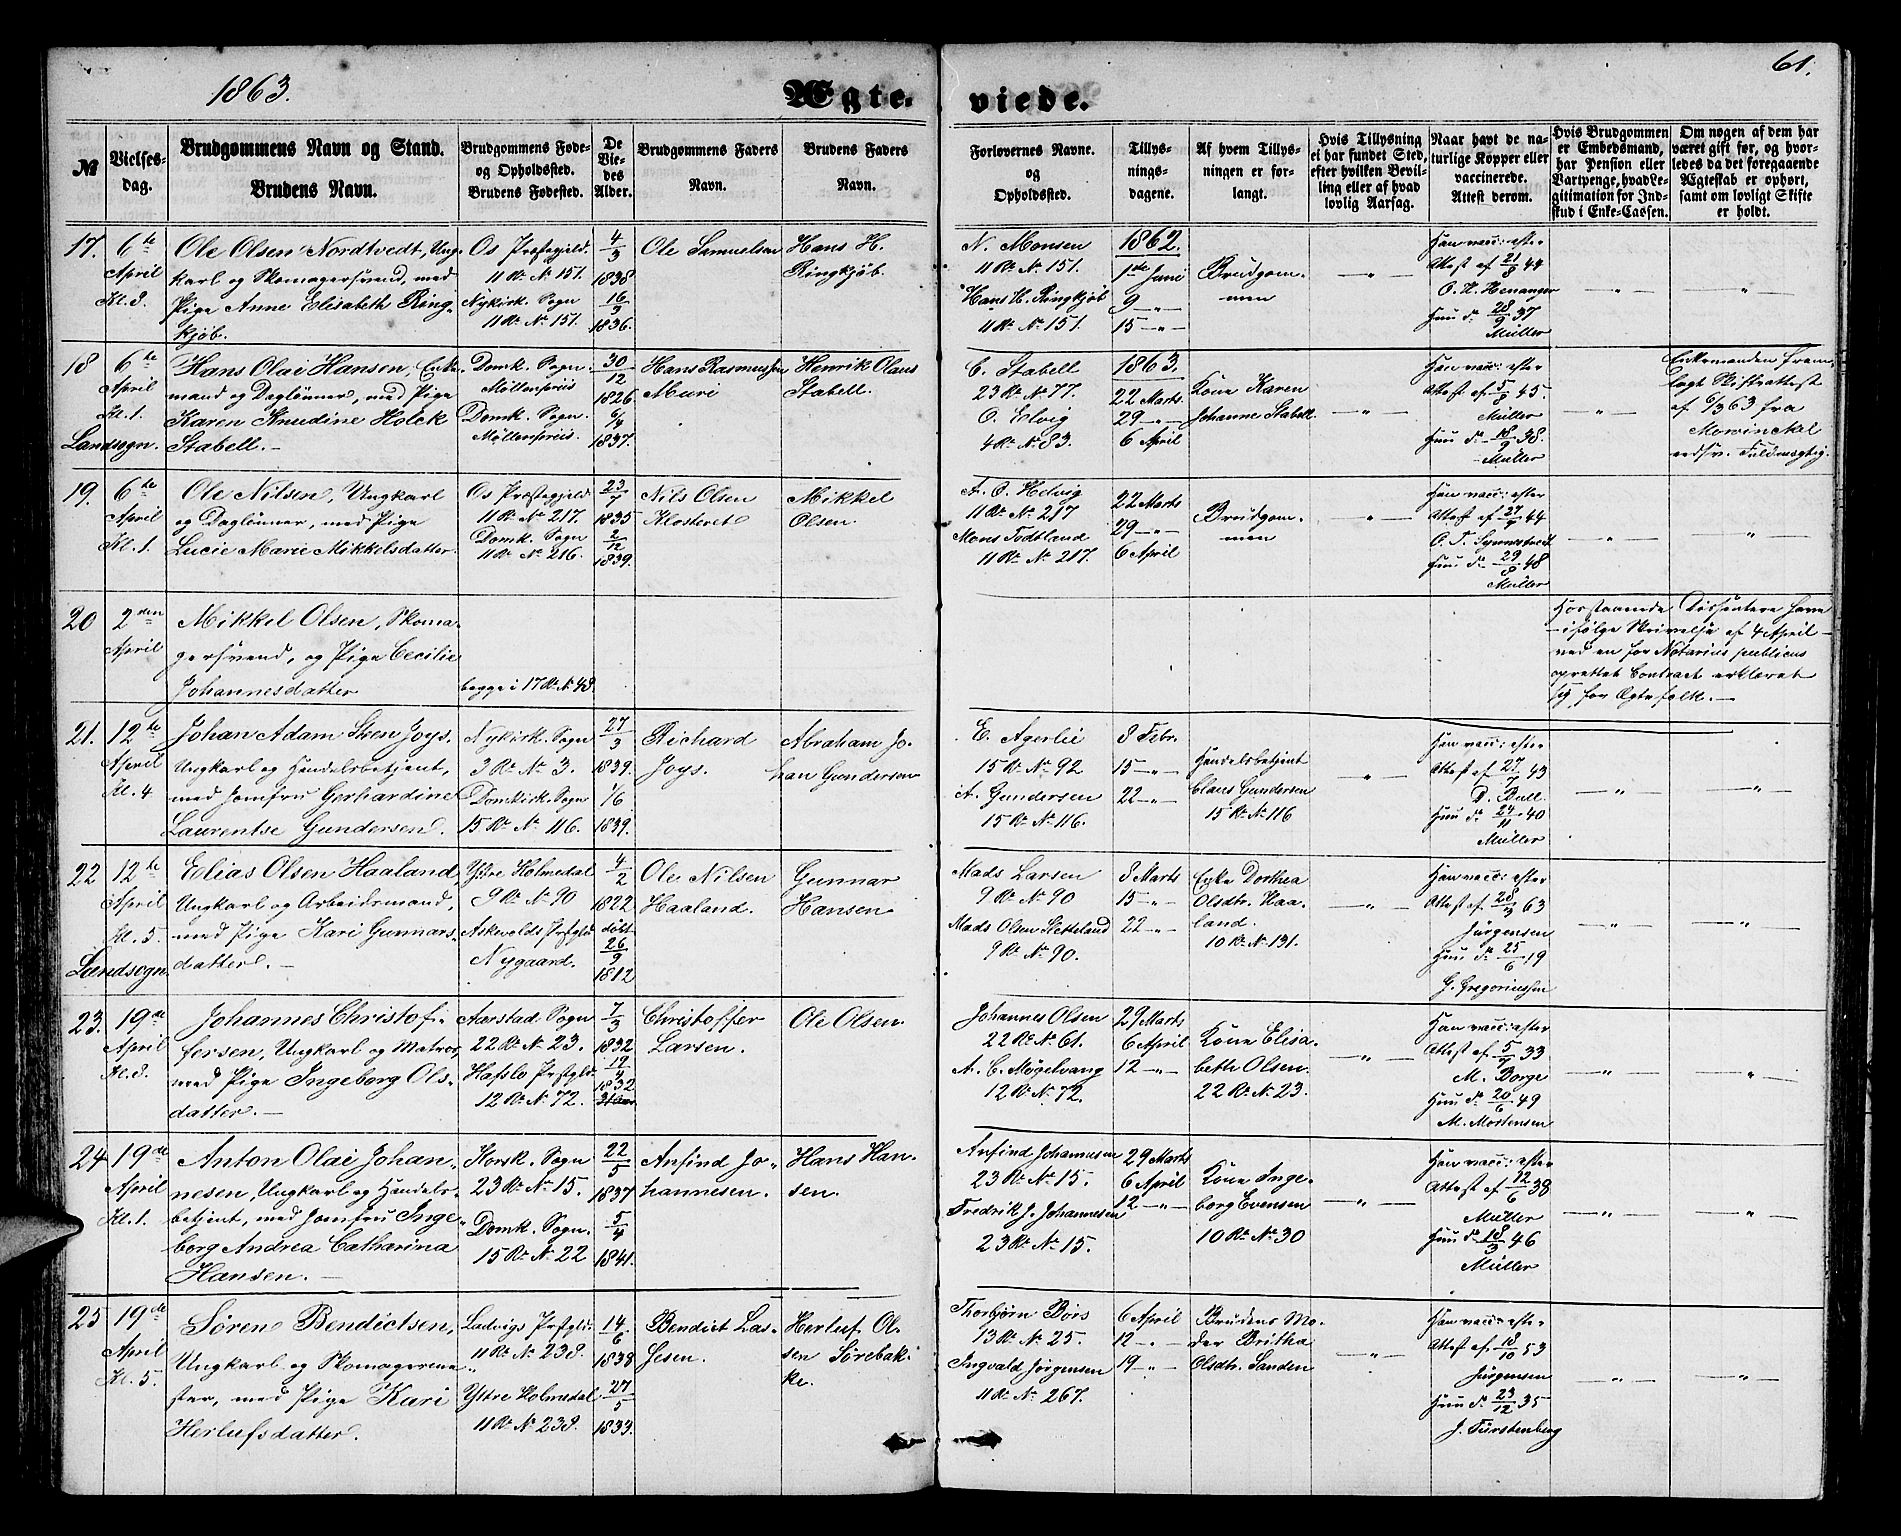 1863.
Ægte-
viede.
61.
№
Vielses-
dag.
Brudgommens Navn og Stand.
Brudens Navn.
Brudgommens Føde-
og Opholdssted.
Brudens Fødested.
De
Vie-
des
Alder.
Brudgommens Faders
Navn.
Brudens Faders
Navn.
Forlovernes Navne.
og
Opholdssted.
Tillys-
nings-
dagene.
Af hvem Tillys-
ningen er for-
langt.
Hvis Tillysning
ei har fundet Sted,
efter hvilken Bevil-
ling eller af hvad
lovlig Aarsag.
Naar havt de na-
turlige Kopper eller
vaccinerede.
Attest derom.
Hvis Brudgommen
er Embedsmand,
har Pension eller
Vartpenge, hvad Le-
gitimation for Ind-
skud i Enke-Cassen.
Om nogen af dem har
været gift før, og hvor-
ledes da det foregaaende
Ægteskab er ophørt,
samt om lovligt Skifte
er holdt.
17.
6te
April
Kl. 8.
Ole Olsen Nordtvedt, Ung-
karl og Skomagersvend, med
Pige Anne Elisabeth Ring-
kjøb.
Os Præstegjeld.
11 Rd. N. 151.
Nykirk. Sogn
11 Rd. N. 151.
4/3
1838
16/9
1836.
Ole Samuelsen
Hans H.
Ringkjøb.
N. Monsen
11 Rd. N. 151.
Hans H. Ringkjøb
11 Rd. N. 151.
1862.
1ste Juni
9 — " —
15 — " —
Brudgom-
men
— " —
Han vacc: efter
Attest af 21/8 44
O. H. Henanger
Hun d. 28/9 37
Müller
— " —
— " —
18
6te
April
Kl. 1.
Landsogn.
Hans Olai Hansen, Enke-
mand og Daglønner, med Pige
Karen Knudine Holck
Stabell. —
Domk. Sogn.
Möllenpreis
Domk. Sogn.
Möllenpreis.
30/12
1826
6/4
1837.
Hans Rasmussen
Muri
Henrik Olaus
Stabell.
C. Stabell
23 Rd. N. 77.
O. Elvig
4 Rd. N. 83.
1863.
22 Marts
29 — " —
6 April
Kone Karen
Johanne Stabell
— " —
Han vacc: efter
Attest af 5/8 45.
Müller
Hun d. 18/9 38.
Müller
— " —
Enkemanden frem-
lagt Skifteattest
af 6/3 63 fra
Morvinckel
19.
6te
April
Kl. 1.
Ole Nilsen, Ungkarl
og Daglønner, med Pige
Lucie Marie Mikkelsdatter.
Os Præstegjeld.
11 Rd. N. 217.
Domk. Sogn
11 Rd. N. 216.
23/7
1835
2/12
1839.
Nils Olsen
Klosteret
Mikkel
Olsen.
A. O. Helvig
11 Rd. N. 217
Mons Todtland
11 Rd. N. 217.
22 Marts
29 — " —
6 April
Brudgom-
men
— " —
Han vacc: efter
Attest af 27/9 44
Hun d. 29/8 48
Müller
— " —
— " —
20
2den
April
Mikkel Olsen, Skoma-
gersvend, og Pige Cecilie
Johannesdatter
begge i 17 Rd. N. 48.
Forstaaende Dissentere have
ifølge Skrivelse af 4 April
ved en for Notarius publicus
oprettet Contract erklæret
sig for Ægtefolk. —
21.
12te
April
Kl. 4
Johan Adam Steen Joys.
Ungkarl og Handelsbetjent,
med Jomfru Gerhardine
Laurentse Gundersen.
Nykirk. Sogn
3 Rd. N. 3.
Domkirk. Sogn
15 Rd. N. 116.
27/3
1839.
1/6
1839.
Richard
Joys.
Abraham Jo-
han Gundersen
E. Agerlie
15 Rd. N. 92
A. Gundersen
15 Rd. N. 116.
8 Febr.
15 — " —
22 — " —
Handelsbetjent
Claus Gundersen
15 Rd. N. 116
— " —
Han vacc: efter
Attest af 27/7 43
D. Bull.
Hun d. 24/11 40
Müller
— " —
— " —
22
12te
April
Kl. 5.
Landsogn.
Elias Olsen Haaland,
Ungkarl og Arbeidsmand,
med Pige Kari Gunnars-
datter. —
Ystre Holmedal
9 Rd. N. 90
Askevolds Prstgld
Nygaard.
4/2
1822
døbt
26/9
1812
Ole Nilsen
Haaland.
Gunnar
Hansen
Mads Larsen
9 Rd. N. 90
Mads Olsen Sletteland
9 Rd. N. 90.
8 Marts
15 — " —
22 — " —
Enke Dorthea
Olsdtr. Haa-
land.
10 Rd. N. 131.
— " —
Han vacc: efter
Attest af 28/3 63
Jürgensen
Hun d. 25/6 19
G. Gregoriussen
— " —
— " —
23.
19de
April
Kl. 8.
Johannes Christof-
fersen, Ungkarl og Matros,
med Pige Ingeborg Ols-
datter. —
Aarstad Sogn
22 Rd. N. 23.
Hafslo Prstgld.
12 Rd. N. 72.
7/3
1832
19/4
1832
31 Aar.
Christoffer
Larsen.
Ole Olsen.
Johannes Olsen
22 Rd. N. 61.
A. C. Møgelvang
12 Rd. N. 72.
29 Marts
6 April
12 — " —
Kone Elisa-
beth Olsen.
22 Rd. N. 23.
— " —
Han vacc: efter
Attest af 5/7 33
M. Borge
Hun d. 20/6 49
M. Mortensen
— " —
— " —
24
19de
April
Kl. 1.
Anton Olai Johan-
nesen, Ungkarl og Handels-
betjent, med Jomfru Inge-
borg Andrea Catharina
Hansen. —
Korsk. Sogn
23 Rd. N. 15.
Domk. Sogn.
15 Rd. N. 22
22/5
1837
5/4
1841.
Anfind Jo-
hannesen.
Hans Han-
sen.
Anfind Johannesen
23 Rd. N. 15.
Fredrik J. Johannesen
23 Rd. N. 15.
29 Marts
6 April
12 — " —
Kone Inge-
borg Evensen
10 Rd. N. 30
— " —
Han vacc: efter
Attest af 12/6 38
Müller
Hun d. 18/3 46
Müller
— " —
— " —
25
19de
April
Kl. 5.
Søren Bendictsen,
Ungkarl og Skomagerme-
ster, med Pige Kari
Herlufsdatter.
Ladvigs Prstgld.
11 Rd. N. 238.
Ystre Holmedal
11 Rd. N. 238.
14/6
1838
27/5
1833.
Bendict Las-
sesen.
Herluf Ol-
sen Sørebak-
ke.
Thorbjørn Børs
13 Rd. N. 25.
Ingvald Jørgensen
11 Rd. N. 267.
6 April
12 — " —
19 — " —
Brudens Mo-
der Britha
Olsdtr. Sanden
— " —
Han vacc: efter
Attest af 18/10 53
Jürgensen
Hun d. 23/12 35
J. Fürstenberg
— " —
— " —